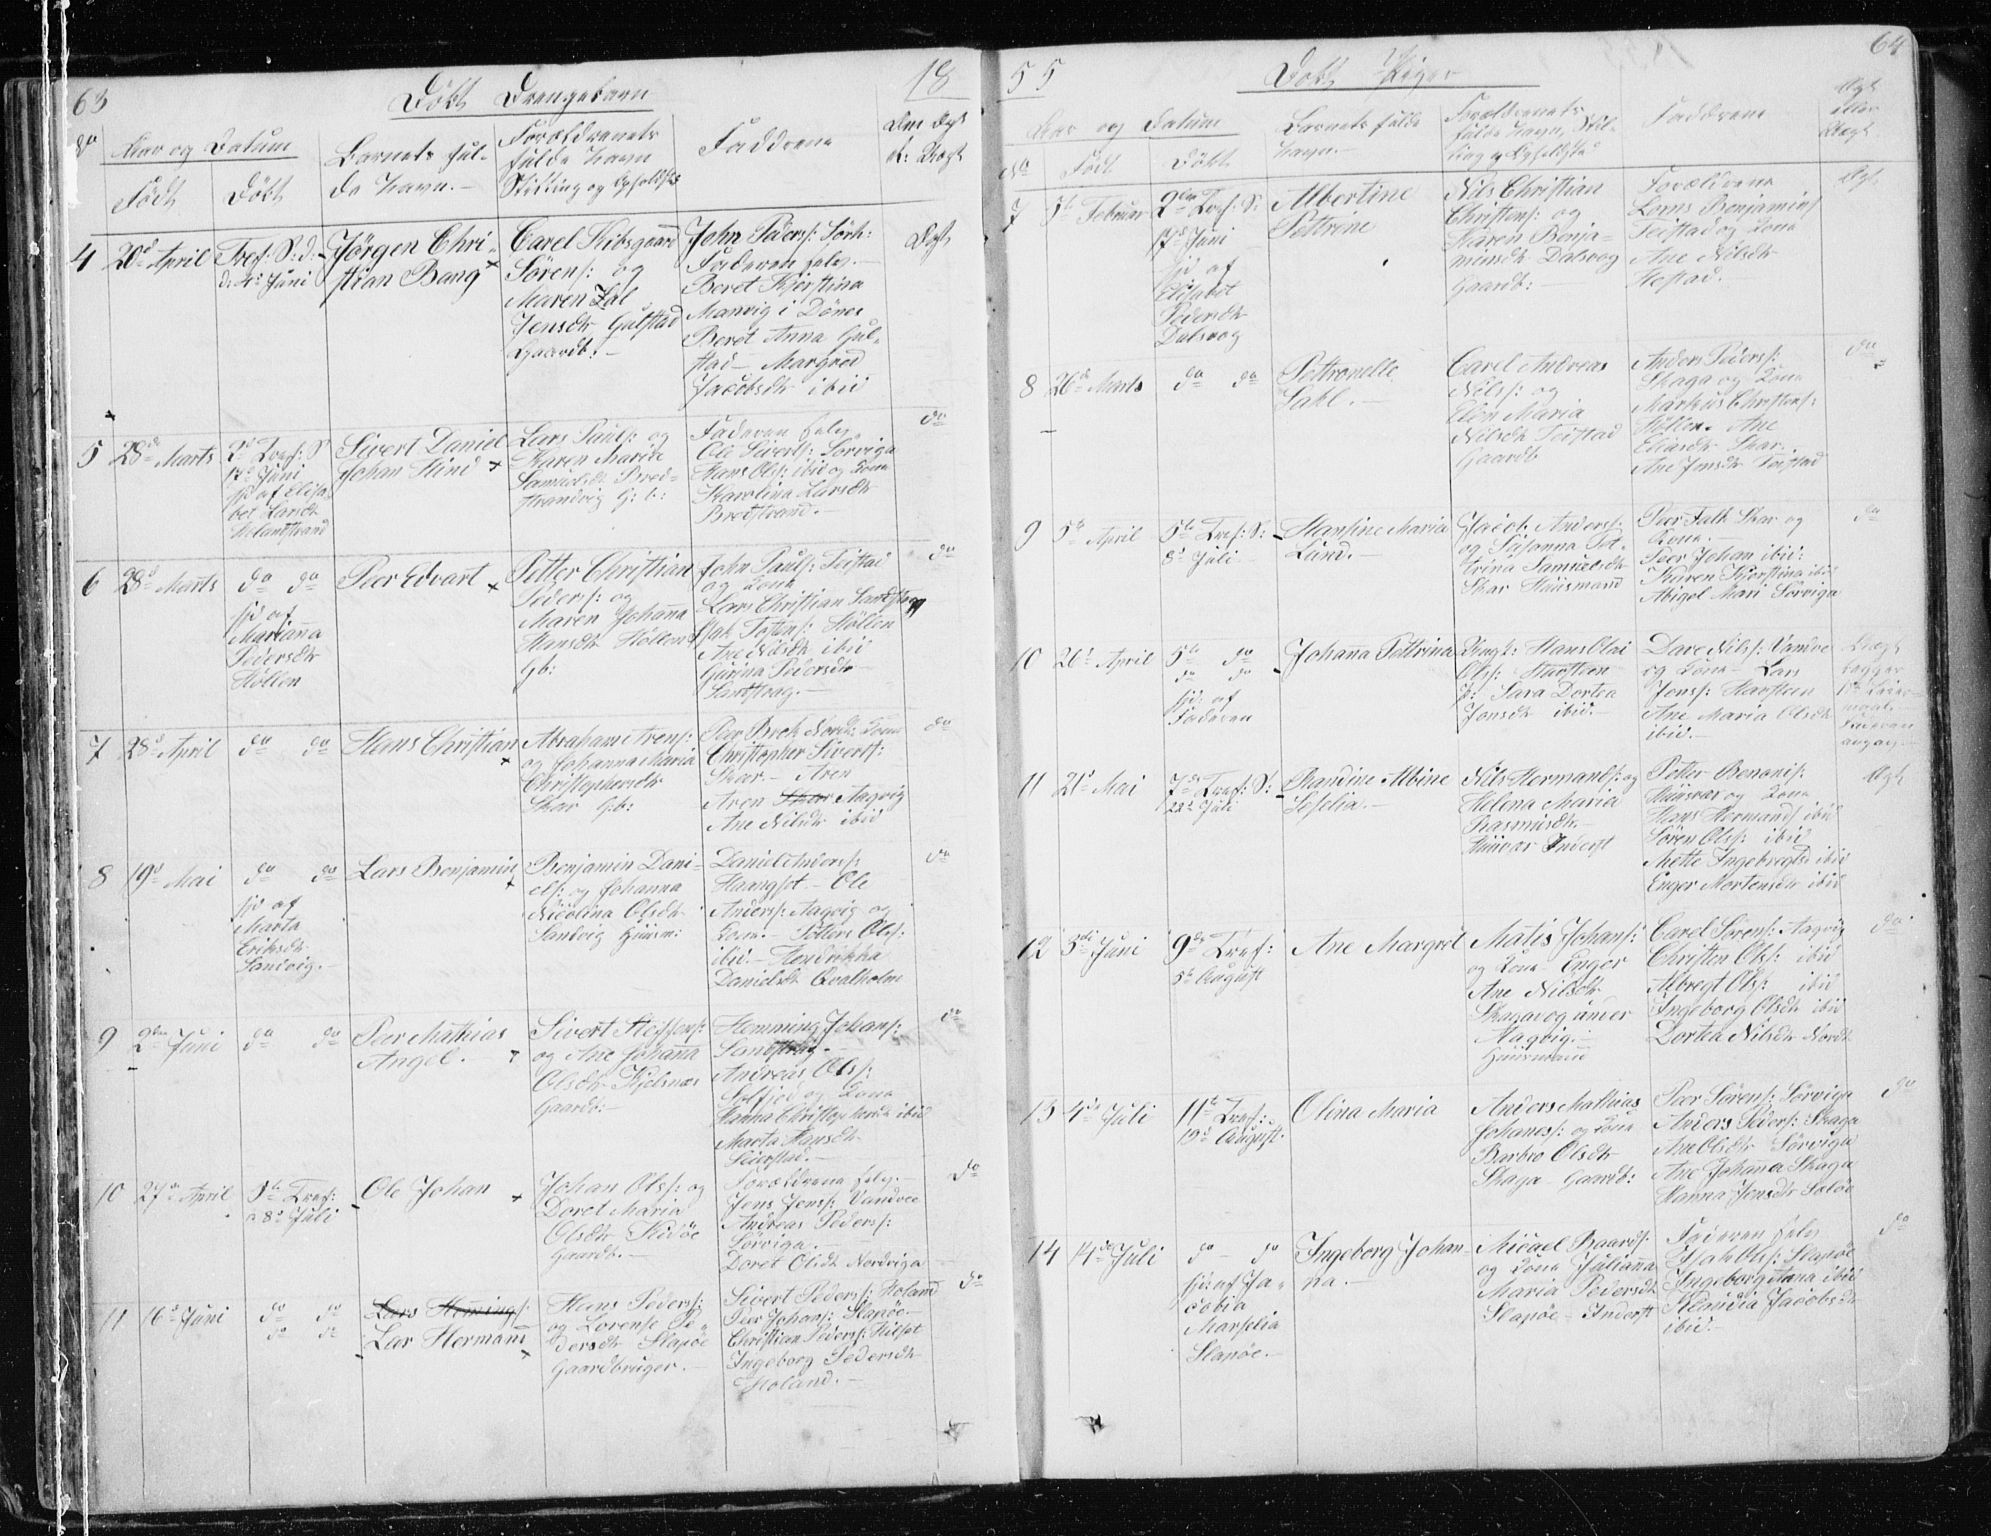 63
Döbt Drengebørn
18
No
Aar og Datum
Født
Döbt
Barnets ful-
de Navn.-
Forældrenets
fulde Navn
Stilling og Opholdst:
Faddrene
4
20de April
Tref: S: d:
d. 4de Juni
Jörgen Chri-
stian Bang
Carel Ribsgaard
Sörens: og
Maren
Jensdtr Gulstad
Gaardb:-
John Peders: Sörh:
Faderen selv.-
Beret Kjerstina
Manvig i Dönes
Beret Anna Gul-
stad - Margred
Jacobsdtr ibid
Ægt
5
28de Marts
2d Tref: S
17de Juni
hjd af Elisa-
bet Larsdtr
Holandstrand
Sivert Daniel
Johan Hind
Lars Pauls: og
Karen Maria
Samuelsdtr Bred-
strandvig G: b:
Faderen selv
Ole Siverts: Sörviga
Hans Ols: ibid og Kone
Karolina Larsdtr
Bredstrand.-
do
6
28de Marts
do do
hjd af
Marianna
Pedersdtr
Höllen
Peer Edvart
Petter Christian
Peders: og
Maren Johanna
Hansdtr Höllen
Gb:
John Pauls: Teistad
og Kone
Lars Christian Sandstrag
Isak Tostens: Höllen
Ane Nilsdtr ibid
Gurina Pedersdtr
Sandstrag.-
do
7
28de April
do do
Hans Christian
Abraham Arens:
og Johanna Maria
Christophersdtr
Skar Gb:
Peer Brek Nordv: Kone
Christopher Siverts:
Skar - Aren
Aren Skar Aagvig
Ane Nilsdtr ibid
do
8
19de Mai
do do
hjd af
Marta
Eriksdtr
Sandvig.-
Lars Benjamin
Benjamin Dani-
els: og Johanna
Nicolina Olsdtr
Sandvig Huusm:
Daniel Anders:
Haugset - Ole
Anders: Aagvig og
Kone.- Petter Ols:
ibid.- Hendrikka
Danielsdtr Qvalholm
do
9
2den Juni
do do
Peer Mathias
Angel.
Sivert Steffens:
og Ane Johanna
Olsdtr Kjelsnæs
Gaardb:-
Hemming Johans:
Sandstrag.-
Andreas Ols:
og Kone
Hanna Christophersdtr ibid
Marta Hansdtr
Seierstad.-
do
10
27de April
5te Tref:
8de Juli
Ole Johan
Johan Ols: og
Doret Maria
Olsdtr Kidöe
Gaardb.-
Forældrene selv.-
Jens Jens: Vandvee
Andreas Peders:
Sörviga.-
Doret Olsdtr Nordviga
do
11
16de Juni
do do
do do
Lars Hemings:
Lar Hermann
Hans Peders:
og Lovense Pe-
dersdtr Slapöe
Gaardbruger.-
Sivert Peders: Holand
Peer Johans: Slapöe-
Christian Peders: Hilset
Ingeborg Pedersdtr
Holand.-
do
55
Döbt Piger
64
No
Aar og Datum
Födt
Döbt
Barnets fulde
Navn.-
Forældrenets
fulde Navn, Stil-
ling og Opholdsted
Faddrene
Ægt
eller
Uægt.
7
5te Februar
2den Tref: S:
17de Juni
hjd af
Elisabet
Pedersdtr
Dalsvog
Albertine
Pettrine
Nils Christian
Christens: og
Karen Benja-
minsdtr Dalsvog
Gaardb:-
Forældrene
Lorns Benjamins
Teistad og Kone
Ane Nilsdtr
Hestad.
Ægt
8
26de Marts
do do
Pettronelle
Dahl.-
Carel Andreas
Nils: og
Elen Maria
Nilsdtr Teistad
Gaardb
Anders Peders:
Skaga og Kone
Markus Christens:
Höllen. Ane
Skar.
Ane Jensdtr Teistad
do
9
5te April
5te Tref: S:
8de Juli
Hansine Maria
Lund.-
Jacob Anders:
og Susanna Pet-
trina Samuelsdtr
Skar Huusmand
Peer Falk Skar og
Kone.
Peer Johan ibid:
Karen Kjerstina ibid
Abigel Mari Sörviga
do
10
26de April
5te do
do do
hjd: af
Faderen
Johanna Pettrina
Ungk: Hans Olai
Ols: Havsteen
P: Sara Dortea
Jonsdtr ibid.-
Dave Nils: Vandve
og Kone - Lars
Jens: Havsteen
Ane Maria Olsdtr
ibid.-
Uægt
begges
1ste Leier-
maal.
Faderen
angav.-
11
21de Mai
7de Tref: S:
22de Juli
Randine Albine
Sefelia.-
Nils Hermands: og
Helena Maria
Rasmusdtr.-
Huusvær Inderst
Petter Benonis:
Huusvær og Kone
Hans Hermands ibid
Sören Ols: ibid
Mette Ingebregtsd ibid
Enger Mortensdtr ibid
Ægt
12
5te Juni
9de Tref:
5te August
Ane Margret
Matis Johans:
og Kone Enger
Ane Nilsdtr
Skagavog under
Aagvig.-
Huusmand
Carel Sörens: Aagvig
Christen Ols: ibid
Albregt Ols: ibid
Ingeborg Olsdtr ibid
Dortea Nilsdtr Nordv
do
13
4de Juli
11te Tref:
19de August.
Olina Maria
Anders Mathias
Johanes: og Kone
Barbro Olsdtr
Skaga Gaardb:
Peer Sörens: Sörviga
Anders Peders: Skaga
Ane Olsdtr Sörviga
Ane Johanna Skaga
Hanna Jensdtr
do
14
14de Juli
do - do
hjd: af Ja-
cobia
Marselia
Slapöe.-
Ingeborg Johan-
na.-
Micael Baards:
og Kone Julianna
Maria Pedersdtr
Slapöe - Inderst
Faderen selv
Isak Ols: Slapöe
Ingeborg Anna ibid
Klaudia Jacobsdtr
ibid.-
do